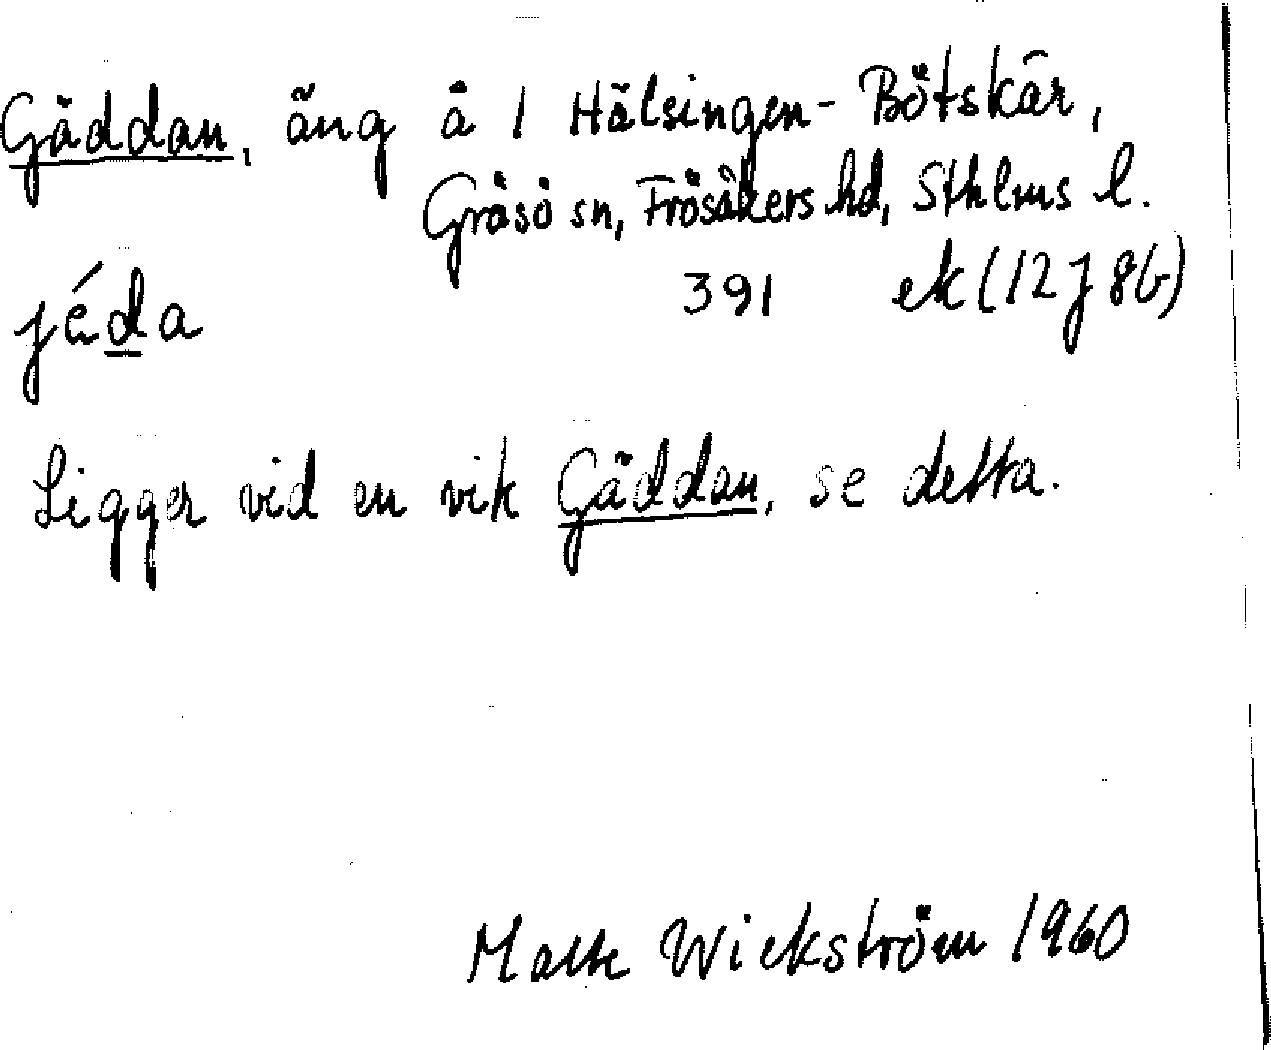 Gäddan, äng å 1 Hälsingen-Bötskär,
Gräsö sn, Frösåkers hd, Sthlms l.
jéda 391 ek (12 J 8b)
Ligger vid en vik Gäddan, se detta.
Malte Wickström 1960